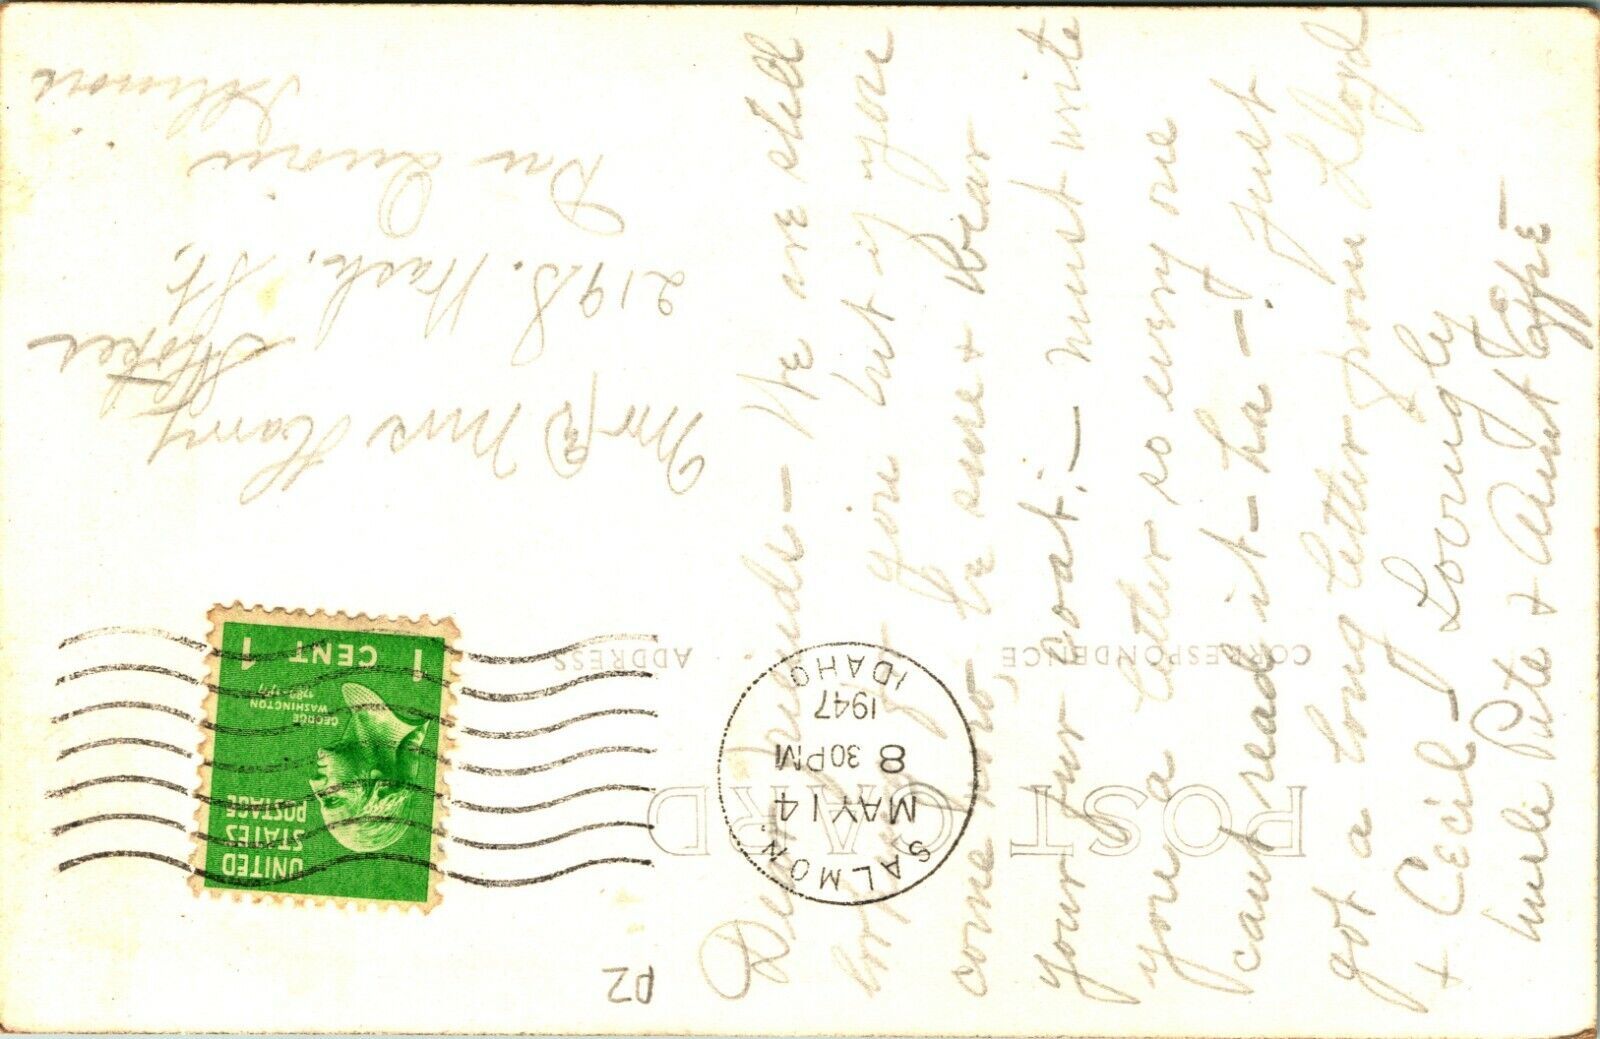 POST CARD
CORRESPONDENCE
ADDRESS
SALMON.
MAY 14
8 30 PM
1947
IDAHO
UNITED
STATES
POSTAGE
GEORGE
WASHINGTON
1789-1797
1 CENT 1
PZ
Dear friends - We are still
looking for you but if you
come now be sure + Bear
your fur coat. - must write
you a letter so every one
cant read it - ha -. Just
got a long letter from Lloyd
+ Cecil - Lovingly
Uncle Pete + Aunt
Mr & Mrs Harry
Stokes
219 S. Wash. St.
Du Quoin
Illinois